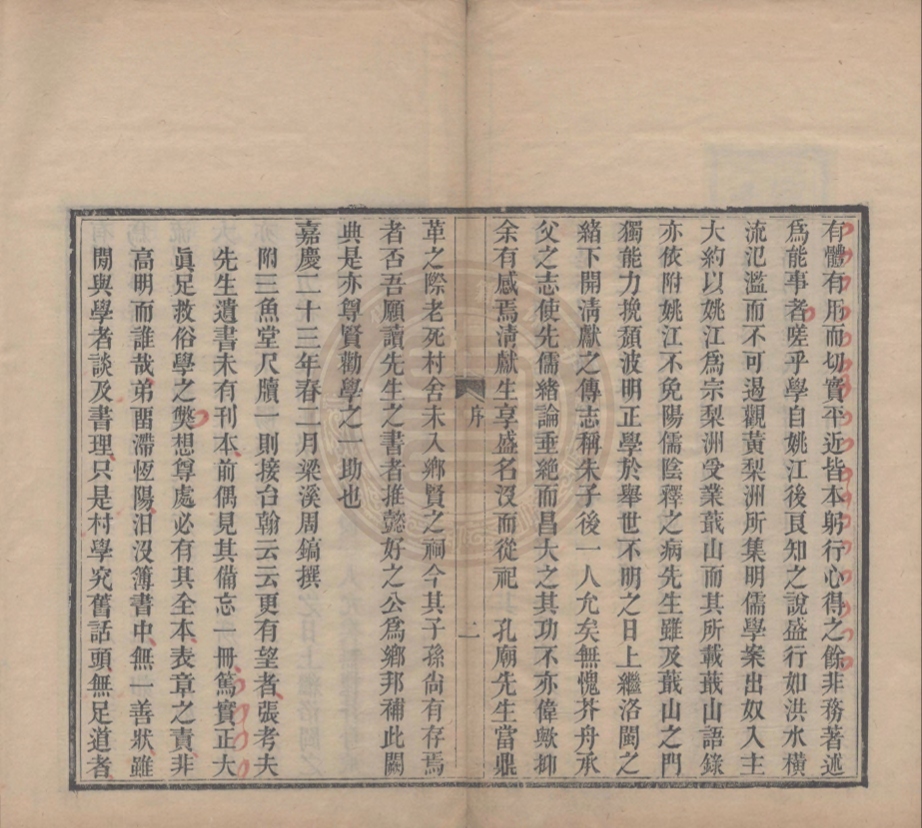 有體有用而切實平近皆本躬行心得之餘非務著述
為能事者嗟乎學自姚江後良知之說盛行如洪水橫
流氾濫而不可遏觀黃梨洲所集明儒學案出奴入主
大約以姚江為宗梨洲受業蕺山而其所載蕺山語錄
亦依附姚江不免陽儒陰釋之病先生雖及蕺山之門
獨能力挽頹波明正學於舉世不明之日上繼洛閩之
緒下開清獻之傳志稱朱子後一人允矣無愧芥舟承
父之志使先儒緒論垂絶而昌大之其功不亦偉歟抑
余有感焉清獻生享盛名沒而從祀　孔廟先生當鼎
序
二
革之際老死村舍未入鄉賢之祠今其子孫尙有存焉
者否吾願讀先生之書者推懿好之公為鄉邦補此闕
典是亦尊賢勸學之一助也
嘉慶二十三年春二月梁溪周鎬撰
附三魚堂尺牘一則接台翰云云更有望者張考夫
先生遺書未有刊本前偶見其備忘一冊篤實正大
眞足救俗學之獘想尊處必有其全本表章之責非
高明而誰哉弟畱滯恆陽汨沒簿書中無一善狀雖
閒與學者談及書理只是村學究舊話頭無足道者